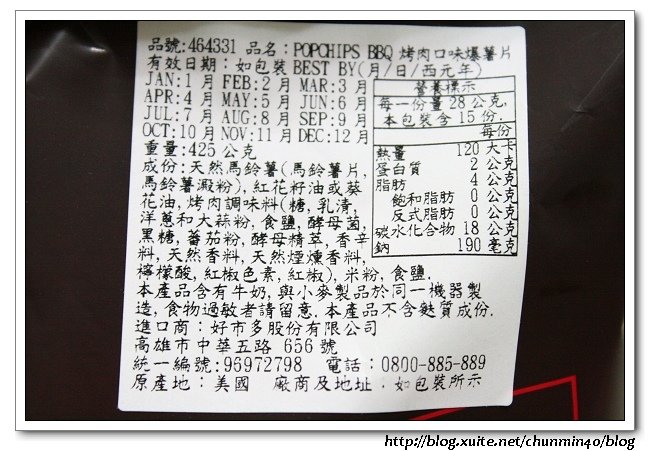 品號:464331 品名:POPCHIPS BBQ 烤肉口味爆薯片
有效日期:如包裝BEST BY(月/日/西元年)
JAN:1月 FEB:2月 MAR:3月
APR:4月 MAY:5月 JUN:6月
JUL:7月 AUG:8月 SEP:9月
OCT:10月 NOV:11月 DEC:12月
重量:425公克
營養標示
每一份量28公克,
本包裝含15份.
每份
熱量 120大卡
蛋白質 2公克
脂肪 4公克
飽和脂肪 0公克
反式脂肪 0公克
碳水化合物 18公克
鈉 190毫克
成份:天然馬鈴薯(馬鈴薯片,
馬鈴薯澱粉),紅花籽油或葵
花油,烤肉調味料(糖,乳清,
洋蔥和大蒜粉,食鹽,酵母菌,
黑糖,蕃茄粉,酵母精萃,香辛
料,天然香料,天然煙燻香料,
檸檬酸,紅椒色素,紅椒),米粉,食鹽.
本產品含有牛奶,與小麥製品於同一機器製
造,食物過敏者請留意.本產品不含麩質成份.
進口商:好市多股份有限公司
高雄市中華五路 656號
統一編號:96972798 電話:0800-885-889
原產地:美國 廠商及地址:如包裝所示
http://blog.xuite.net/chunmin40/blog